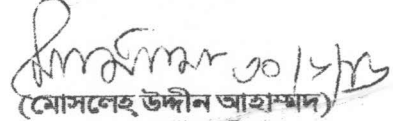 ৩০/৮/১৬
(মোসলেহ্ উদ্দীন আহাম্মদ)